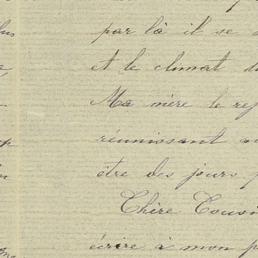 par là il se
et le climat d
Ma mère le re
réunissant
être des jours
Chère Cousi
écrire à mon p